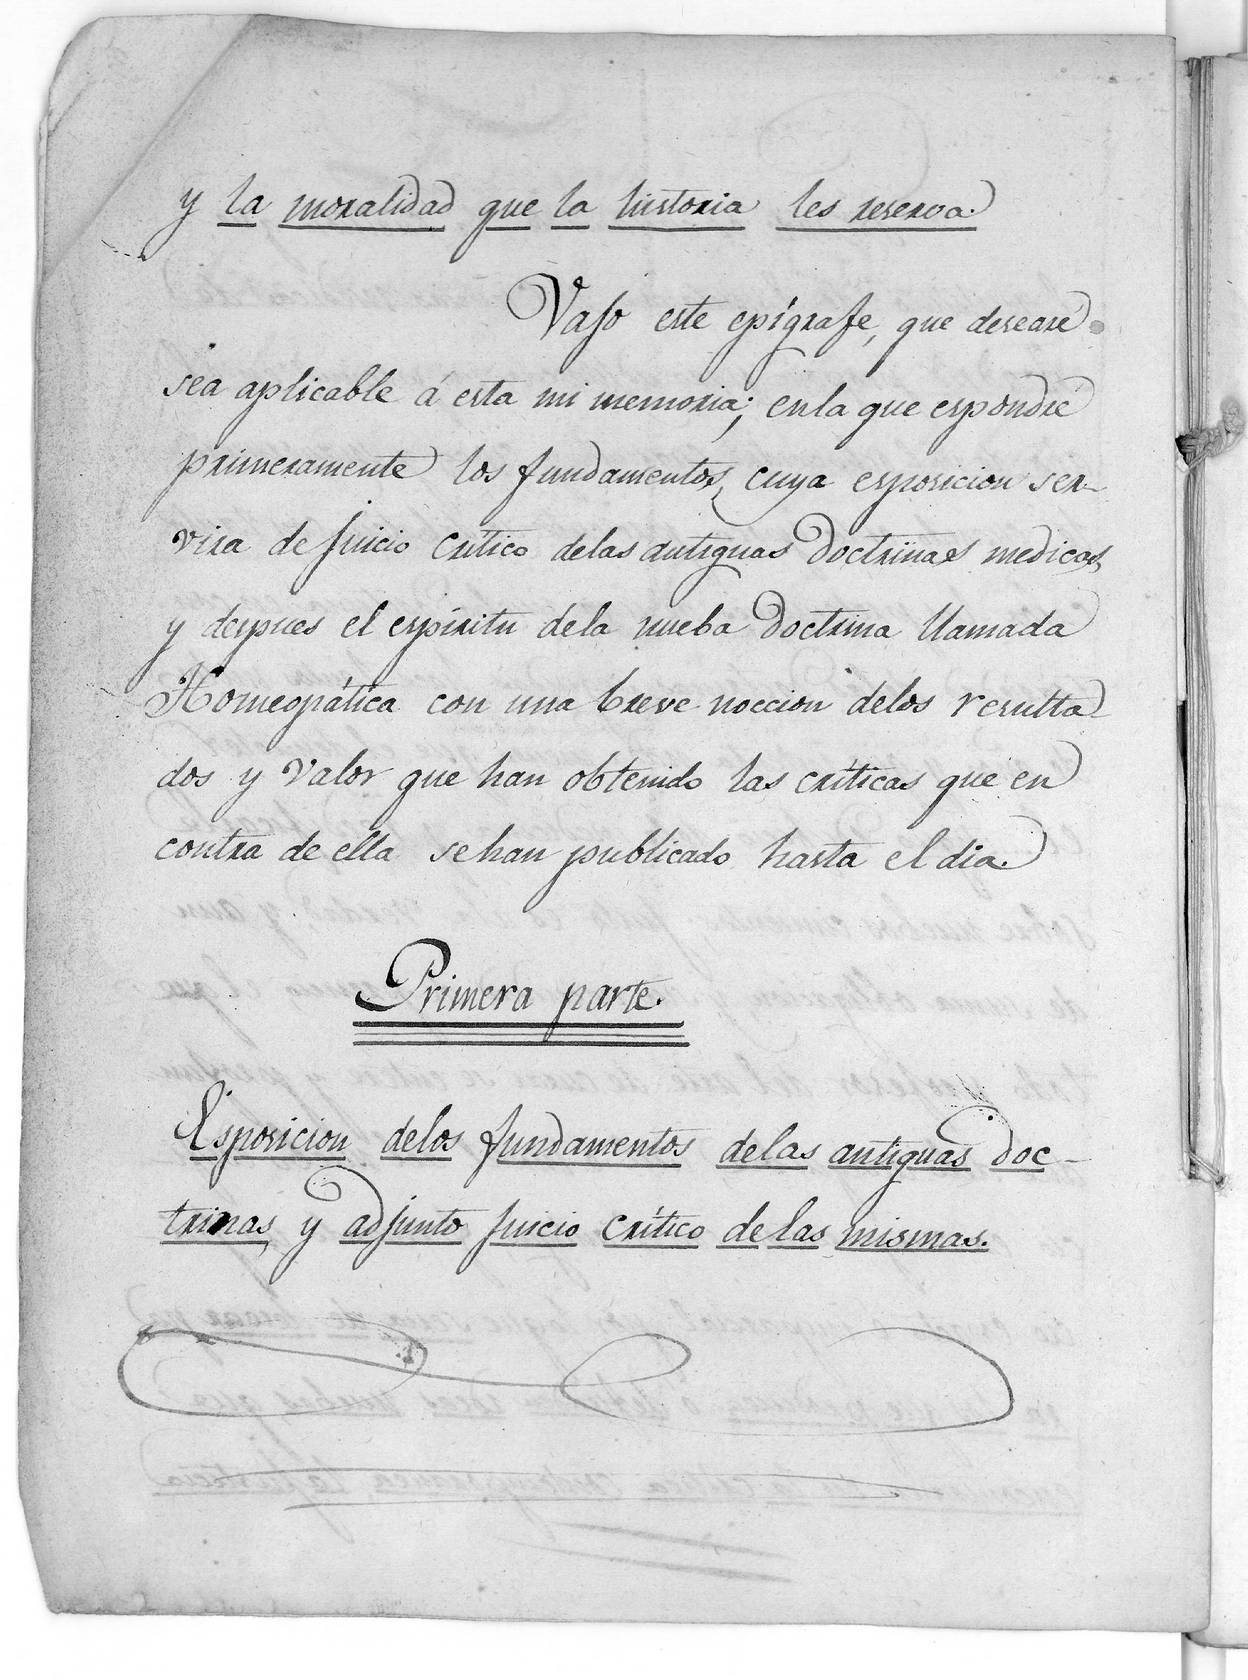 y la moralidad que la historia les reserva.
Vajo este epígrafe, que deseare
sea aplicable á esta mi memoria; enla que espondré
primeramente los fundamentos, cuya esposicion ser-
vira de juicio crítico delas antiguas doctrinas medicas,
y despues el espíritu dela nueba doctrina llamada
Homeopática con una breve noccion delos resulta-
dos y valor que han obtenido las críticas que en
contra de ella sehan publicado hasta el dia.
Primera parte.
Esposicion delos fundamentos delas antiguas doc-
trinas, y adjunto juicio crítico de las mismas.